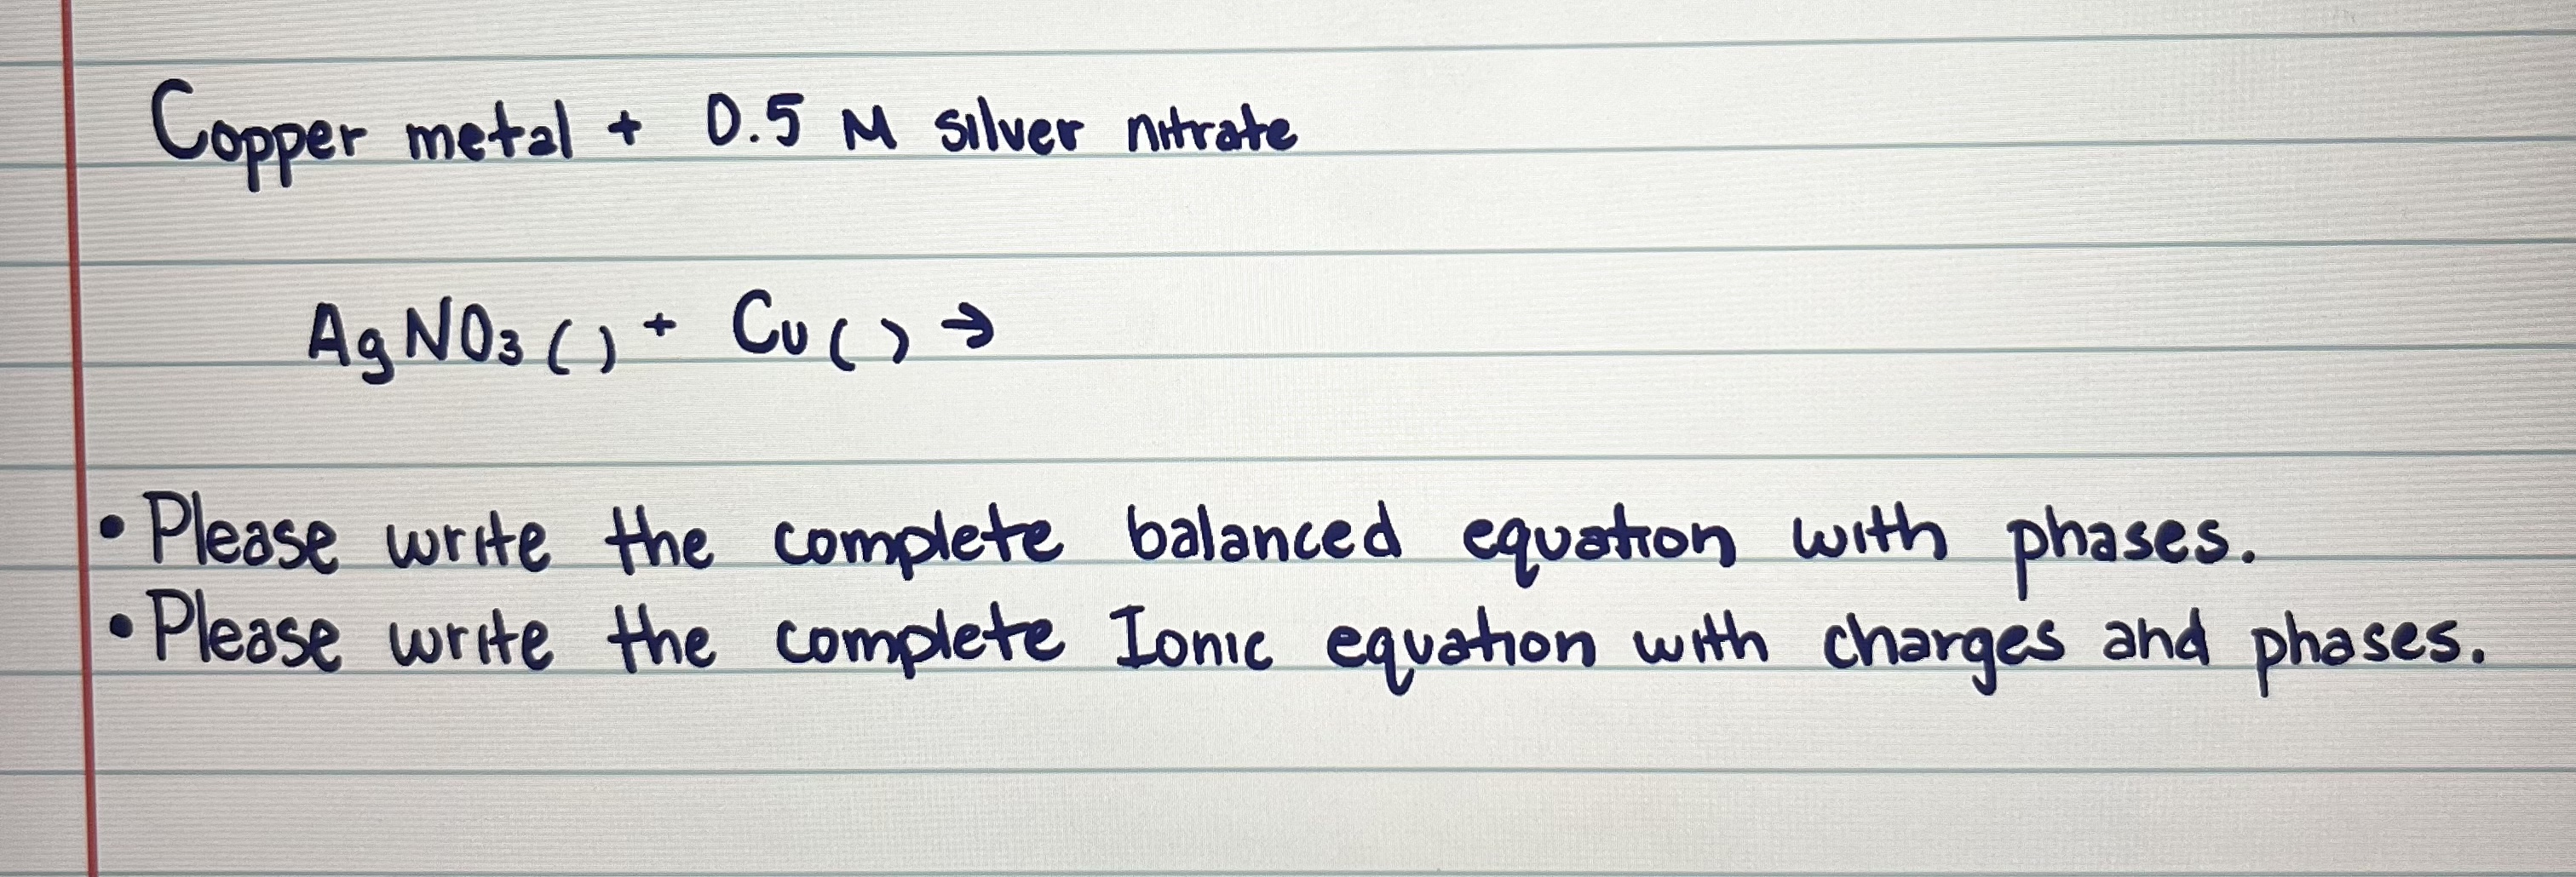 Copper metal + 0.5 M silver nitrate
AgNO₃ ( ) + Cu ( ) →
• Please write the complete balanced equation with phases.
• Please write the complete Ionic equation with charges and phases.